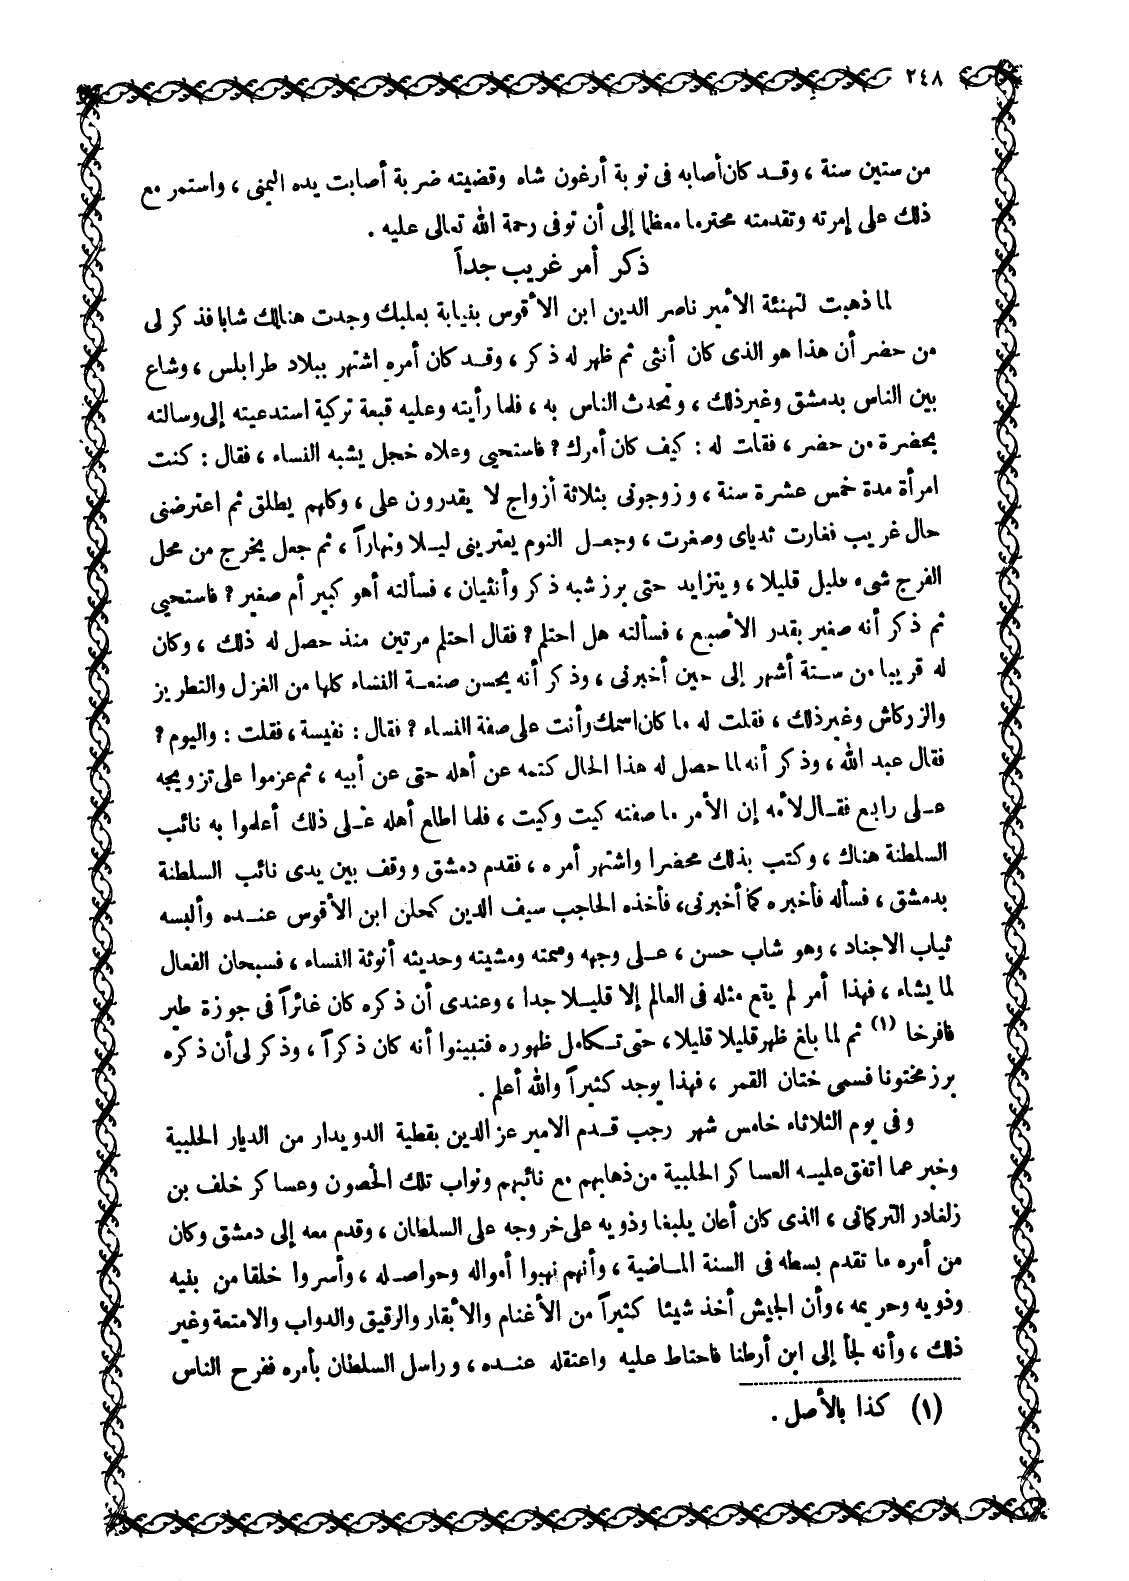 ٢٤٨
من ستين سنة ، وقد كان أصابه فى نوبة أرغون شاه وقضيته ضربة أصابت يده اليمنى ، واستمر مع
ذلك على إمرته وتقدمته محترما معظما إلى أن توفى رحمة الله تعالى عليه .
ذكر أمر غريب جداً
لما ذهبت لتهنئة الأمير ناصر الدين ابن الأقوس بنيابة بعلبك وجدت هنالك شابا فذكر لى
من حضر أن هذا هو الذى كان أنثى ثم ظهر له ذكر ، وقد كان أمره اشتهر ببلاد طرابلس ، وشاع
بين الناس بدمشق وغير ذلك ، وتحدث الناس به ، فلما رأيته وعليه قبعة تركية استدعيته إلى وسألته
بحضرة من حضر ، فقلت له : كيف كان أمرك ؟ فاستحيى وعلاه خجل يشبه النساء ، فقال : كنت
امرأة مدة خمس عشرة سنة ، وزوجونى بثلاثة أزواج لا يقدرون على ، وكلهم يطلق ثم اعترضنى
حال غريب فغارت ثدياى وصغرت ، وجعل النوم يعترينى ليلا ونهاراً ، ثم جعل يخرج من محل
الفرج شىء قليل قليلا ، ويتزايد حتى برز شبه ذكر وأنثيان ، فسألته أهو كبير أم صغير ؟ فاستحيى
ثم ذكر أنه صغير بقدر الأصبع ، فسألته هل احتلم ؟ فقال احتلم مرتين منذ حصل له ذلك ، وكان
له قريبا من ستة أشهر إلى حين أخبرنى ، وذكر أنه يحسن صنعة النساء كلها من الغزل والتطريز
والزركاش وغير ذلك ، فقلت له ما كان اسمك وأنت على صفة النساء ؟ فقال : نفيسة ، فقلت : واليوم ؟
فقال عبد الله ، وذكر أنه لما حصل له هذا الحال كتمه عن أهله حتى عن أبيه ، ثم عزموا على تزويجه
على رابع فقال لأمه إن الأمر ما صفته كيت وكيت ، فلما اطلع أهله على ذلك أعلموا به نائب
السلطنة هناك ، وكتب بذلك محضرا واشتهر أمره ، فقدم دمشق ووقف بين يدى نائب السلطنة
بدمشق ، فسأله فأخبره كما أخبرنى ، فأخذه الحاجب سيف الدين كحلن ابن الأقوس عنده وألبسه
ثياب الاجناد ، وهو شاب حسن ، على وجهه وسمته ومشيته وحديثه أنوثة النساء ، فسبحان الفعال
لما يشاء ، فهذا أمر لم يقع مثله فى العالم إلا قليلا جدا ، وعندى أن ذكره كان غائراً فى جوزة طير
فافرخا (١) ثم لما بلغ ظهر قليلا قليلا ، حتى تكامل ظهوره فتبينوا أنه كان ذكراً ، وذكر لى أن ذكره
برز مختونا فسمى ختان القمر ، فهذا يوجد كثيراً والله أعلم .
وفى يوم الثلاثاء خامس شهر رجب قدم الامير عز الدين بقطية الدويدار من الديار الحلبية
وخبر عما اتفق عليه العساكر الحلبية من ذهابهم مع نائبهم ونواب تلك الحصون وعساكر خلف بن
زلغادر التركمانى ، الذى كان أعان يلبغا وذويه على خروجه على السلطان ، وقدم معه إلى دمشق وكان
من أمره ما تقدم بسطه فى السنة الماضية ، وأنهم نهبوا أمواله وحواصله ، وأسروا خلقا من بنيه
وذويه وحريمه ، وأن الجيش أخذ شيئا كثيراً من الأغنام والأبقار والرقيق والدواب والامتعة وغير
ذلك ، وأنه لجأ إلى ابن أرطنا فاحتاط عليه واعتقله عنده ، وراسل السلطان بأمره ففرح الناس
(١) كذا بالأصل .